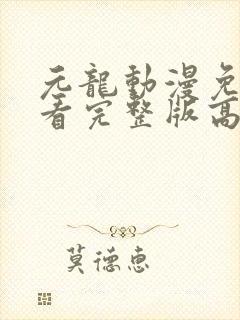 元龍動漫免
看完整版高
莫德惠